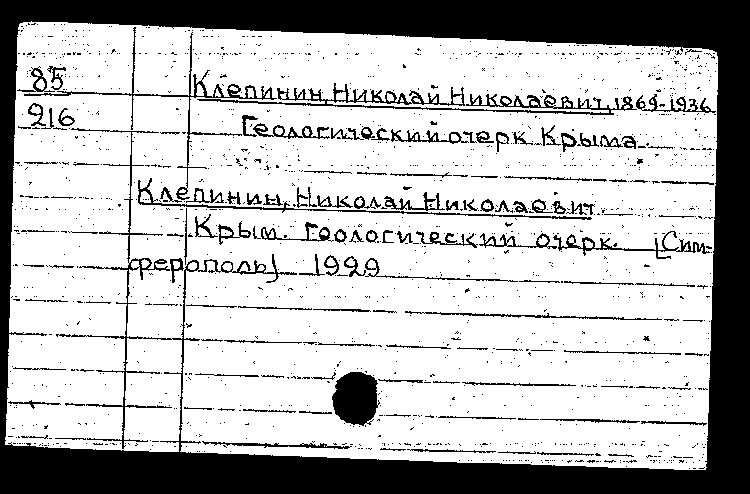 85
216
Клепинин, Николай Николаевич, 1869-1936
Геологический очерк Крыма.
Клепинин, Николай Николаевич.
Крым. Геологический очерк. [Сим-
ферополь] 1929